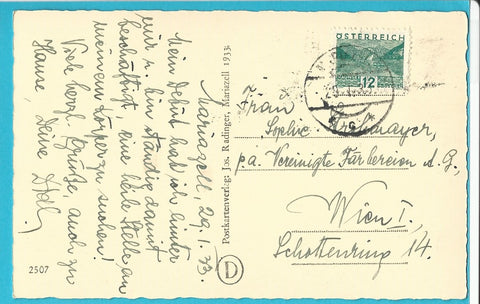 Mariazell, 29./1.33.
Mein Debut hab ich hinter
mir u. bin ständig damit
beschäftigt, eine heile Stelle an
meinem Körper zu suchen!
Viele herzl. Grüße, auch zu
Hause Deine
Postkartenverlag: Jos. Radinger, Mariazell 1933.
ÖSTERREICH
12
Frau
Sophie
p.a. Vereinigte Färbereien A.G.,
Wien I.,
Schottenring 14.
2507
D